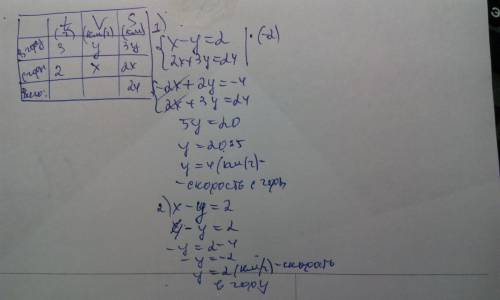 t (ч) V (км/ч) S (км)
в гору 3 y 3y
с горы 2 x 2x
Всего: 24
1)
{ x-y=2 | ·(-2)
2x+3y=24
{ -2x+2y=-4
2x+3y=24
5y=20
y=20:5
y=4 (км/ч)-
-скорость с горы
2) x-y=2
4-y=2
-y=2-4
-y=-2
y=2 (км/ч)-скорость
в гору